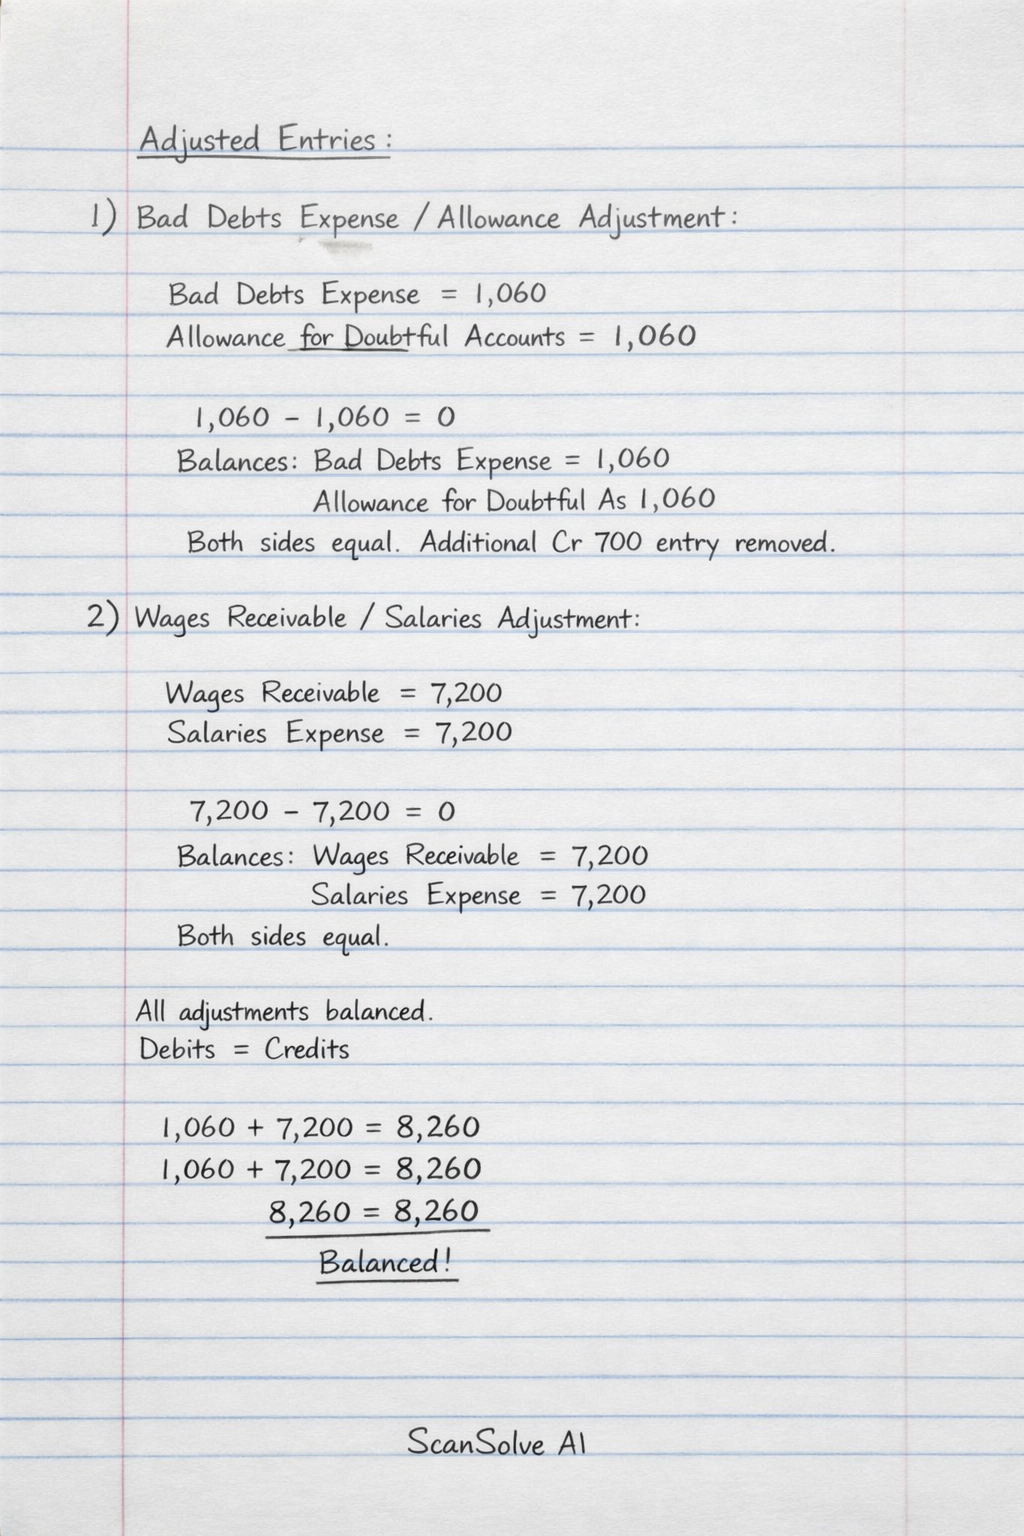 Adjusted Entries:
1) Bad Debts Expense / Allowance Adjustment:
Bad Debts Expense = 1,060
Allowance for Doubtful Accounts = 1,060
1,060 - 1,060 = 0
Balances: Bad Debts Expense = 1,060
Allowance for Doubtful As 1,060
Both sides equal. Additional Cr 700 entry removed.
2) Wages Receivable / Salaries Adjustment:
Wages Receivable = 7,200
Salaries Expense = 7,200
7,200 - 7,200 = 0
Balances: Wages Receivable = 7,200
Salaries Expense = 7,200
Both sides equal.
All adjustments balanced.
Debits = Credits
1,060 + 7,200 = 8,260
1,060 + 7,200 = 8,260
8,260 = 8,260
Balanced!
ScanSolve AI